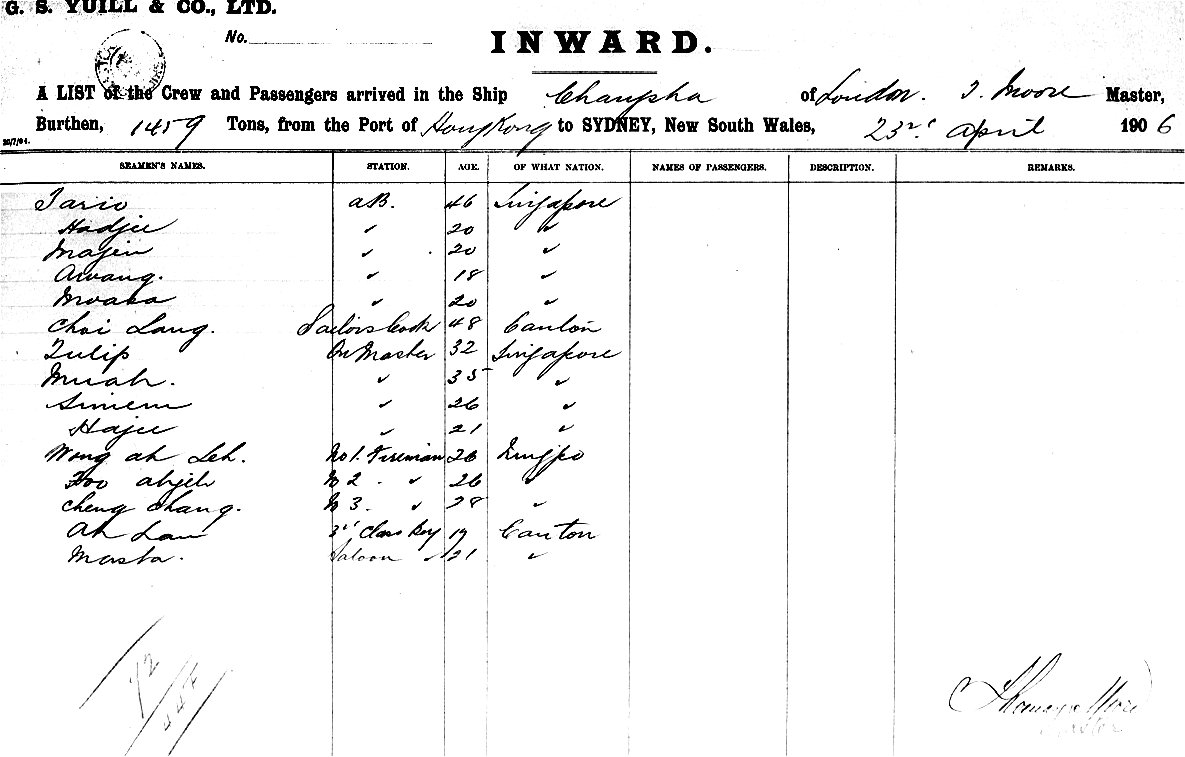 G. S. YUILL & CO., LTD.
No.
INWARD.
A LIST of the Crew and Passengers arrived in the Ship Changsha of London. T. Moore Master,
Burthen, 1459 Tons, from the Port of Hong Kong to SYDNEY, New South Wales, 23rd April 1906
20/7/04.
SEAMEN'S NAMES. STATION. AGE. OF WHAT NATION. NAMES OF PASSENGERS. DESCRIPTION. REMARKS.
Tario AB. 46 Singapore
Hadjie ✓ 20 ✓
Majin ✓ 20 ✓
Awang. ✓ 18 ✓
✓ 20 ✓
Choi Lang. Sailors Cook 48 Canton
Tulip Qr Master 32 Singapore
Miah. ✓ 35 ✓
✓ 26 ✓
Hajee ✓ 21 ✓
Wong ah Leh. No 1. Fireman 26 Ningpo
Foo ahjeh N 2 ✓ 26 ✓
Cheng Chang. N 3. ✓ 28 ✓
Ah Lam 3rd Class Boy 19 Canton
Saloon ✓ 21 ✓
72
Thomas Moore
Master